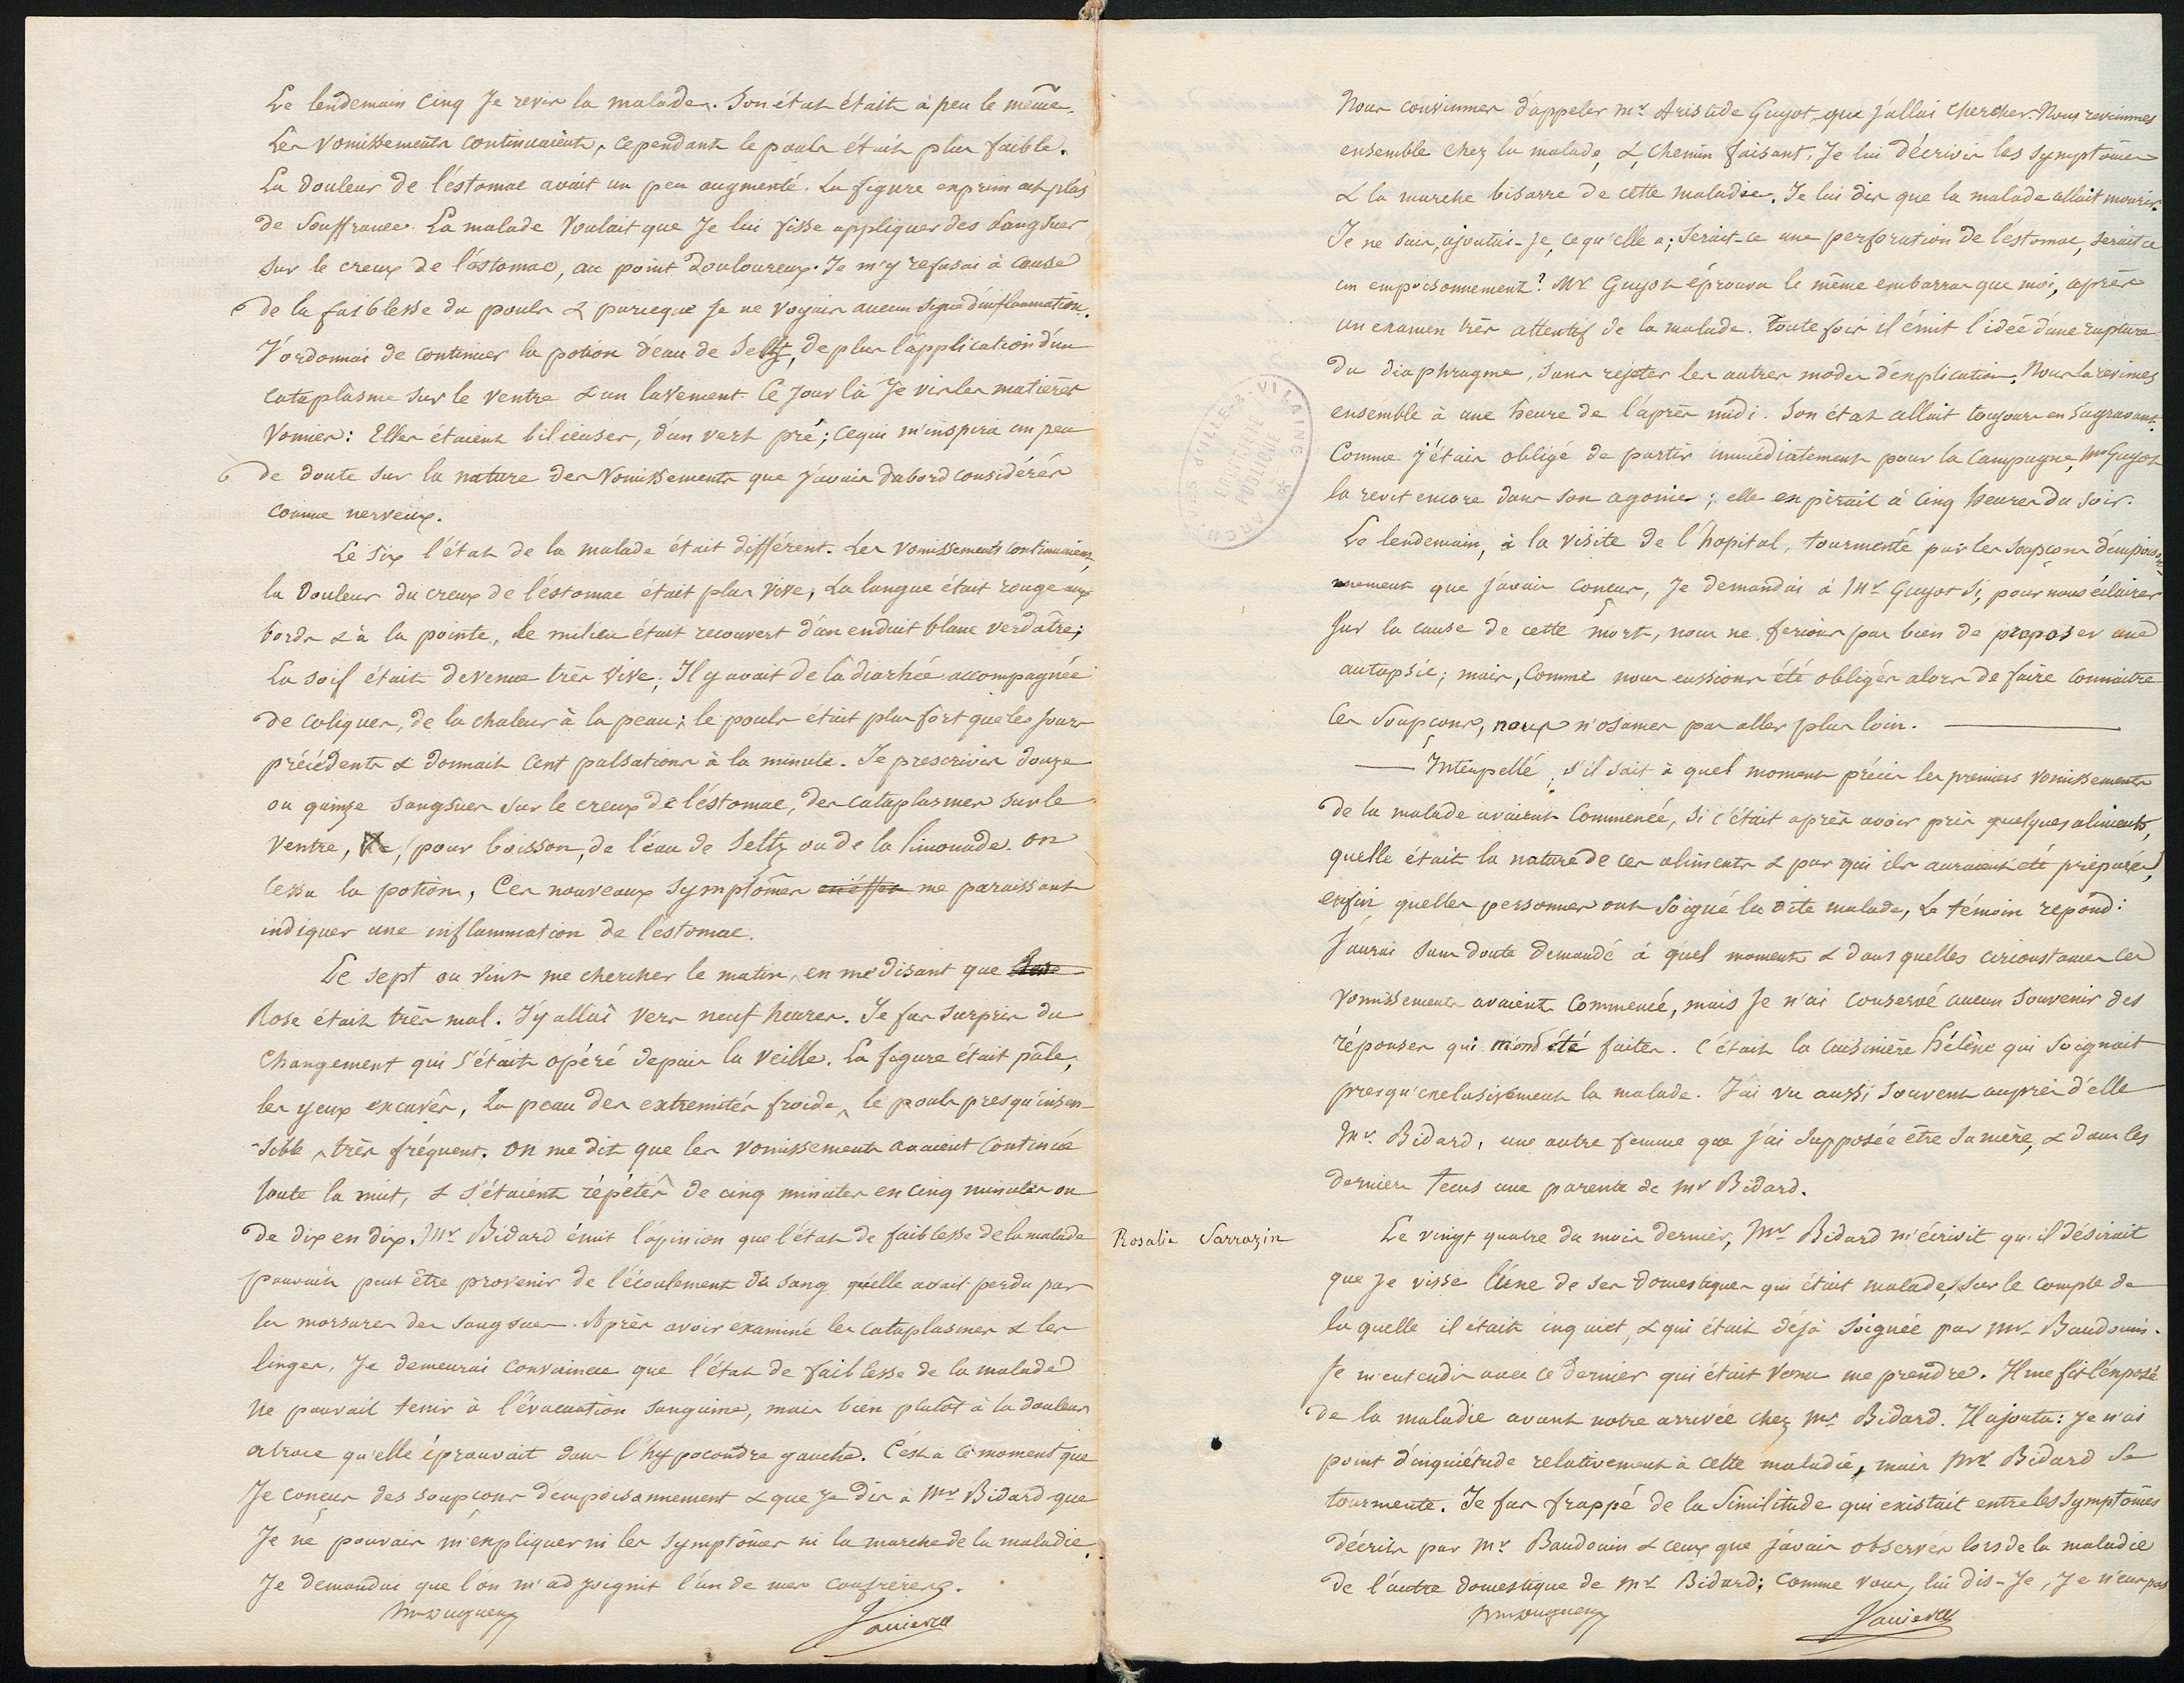 Le lendemain cinq Je revis la malade. Son état était à peu le même.
Les vomissements continuaient, cependant le pouls était plus faible.
La douleur de l'éstomac avait un peu augmenté. La figure exprimait plus
de Souffrance. La malade voulait que Je lui fisse appliquer des sangsues
sur le creux de l'estomac, au point douloureux. Je m'y refusai à cause
de la faiblesse du pouls & parceque Je ne voyais aucun signe d'inflammation.
J'ordonnai de continuer la potion d'eau de Seltz, de plus l'application d'un
cataplasme sur le ventre & un lavement. Ce Jour là Je vis les matières
vomies: Elles étaient bilieuses, d'un vert pré; cequi m'inspira un peu
de doute sur la nature des vomissements que J'avais d'abord considérés
comme nerveux.
Le six l'état de la malade était différent. Les vomissements continuaient,
la douleur du creux de l'éstomac était plus vive, la langue était rouge aux
bords & à la pointe, le milieu était recouvert d'un enduit blanc verdâtre;
La soif était devenue très vive; Il y avait de la diarhée accompagnée
de coliques, de la chaleur à la peau; le pouls était plus fort que les Jours
précédents & donnait cent pulsations à la minute. Je prescrivis douze
ou quinze sangsues sur le creux de l'éstomac, des cataplasmes sur le
ventre, pour boisson, de l'eau de Seltz ou de la limonade. on
cessa la potion, Ces nouveaux symptômes en effet me paraissant
indiquer une inflammation de l'éstomac.
Le sept on vint me chercher le matin, en me disant que Rose
Rose était très mal. J'y allai vers neuf heures. Je fus surpris du
changement qui s'était opéré depuis la veille. La figure était pâle,
les yeux excavés, la peau des extremités froide, le pouls presqu'insen-
-sible, très fréquent. on me dit que les vomissements avaient continué
toute la nuit, & s'étaient répétés de cinq minutes en cinq minutes ou
de dix en dix. Mr Bidard émit l'opinion que l'état de faiblesse de la malade
pouvait peut être provenir de l'écoulement du sang qu'elle avait perdu par
les morsures des sangsues. Après avoir éxaminé les cataplasmes & les
linges, Je demeurai convaincu que l'état de faiblesse de la malade
ne pouvait tenir à l'évacuation sanguine, mais bien plutôt à la douleur
atroce qu'elle éprouvait dans l'hypocondre gauche. C'est à ce moment que
Je conçus des soupçons d'empoisonnement & que Je dis à Mr Bidard que
Je ne pouvais m'expliquer ni les symptômes ni la marche de la maladie.
Je demandai que l'on m'adjoignit l'un de mes confrères.
Nous convinmes d'appeler Mr Aristide Guyot, que J'allai chercher. Nous revinmes
ensemble chez la malade, &, chemin faisant, Je lui décrivis les symptômes
& la marche bisarre de cette maladie. Je lui dis que la malade allait mourir.
Je ne sais, ajoutai-Je, ce qu'elle a; Serait-ce une perforation de l'éstomac, serait ce
un empoisonnement? Mr Guyot éprouva le même embarras que moi, après
un examen très attentif de la malade. Toute fois il émit l'idée d'une rupture
du diaphragme, sans rejeter les autres modes d'explication. Nous la revimes
ensemble à une heure de l'après midi. Son état allait toujours en s'agravant.
Comme j'étais obligé de partir immédiatement pour la campagne, Mr Guyot
la revit encore dans son agonie; elle expirait à cinq heures du soir.
Le lendemain, à la visite de l'hopital, tourmenté par les soupçons d'empoison-
nement que J'avais conçus, Je demandai à Mr Guyot si, pour nous éclairer
sur la cause de cette mort, nous ne ferions pas bien de proposer une
autopsie; mais, comme nous eussions été obligés alors de faire connaitre
ces soupçons, nous n'osames pas aller plus loin.
Interpellé, s'il sait à quel moment précis les premiers vomissements
de la malade avaient commencé, si c'était après avoir pris quelques aliments,
quelle était la nature de ces aliments & par qui ils auraient été préparés,
enfin quelles personnes ont soigné la dite malade, Le témoin repond:
J'aurai sans doute demandé à quel moment & dans quelles circonstances ces
vomissements avaient commencé, mais Je n'ai conservé aucun souvenir des
réponses qui m'ont été faites. C'était la cuisinière Hélène qui soignait
presqu'exclusivement la malade. J'ai vu aussi souvent auprès d'elle
Mr Bidard, une autre femme que J'ai supposée être sa mère, & dans les
derniers tems une parente de Mr Bidard.
Rosalie Sarrazin
Le vingt quatre du mois dernier, Mr Bidard m'écrivit qu'il désirait
que Je visse l'une de ses domestiques qui était malade, sur le compte de
la quelle il était inquiet, & qui était déjà soignée par Mr Baudouin.
Je m'entendis avec ce dernier qui était venu me prendre. Il me fit l'exposé
de la maladie avant notre arrivée chez Mr Bidard. Il ajouta: Je n'ai
point d'inquiétude relativement à cette maladie, mais Mr Bidard se
tourmente. Je fus frappé de la similitude qui existait entre les symptômes
décrits par Mr Baudouin & ceux que J'avais observés lors de la maladie
de l'autre domestique de Mr Bidard; comme vous, lui dis-Je, Je n'eus pas
ARCHIVES D'ILLE-&-VILAINE
PROPRIÉTÉ PUBLIQUE